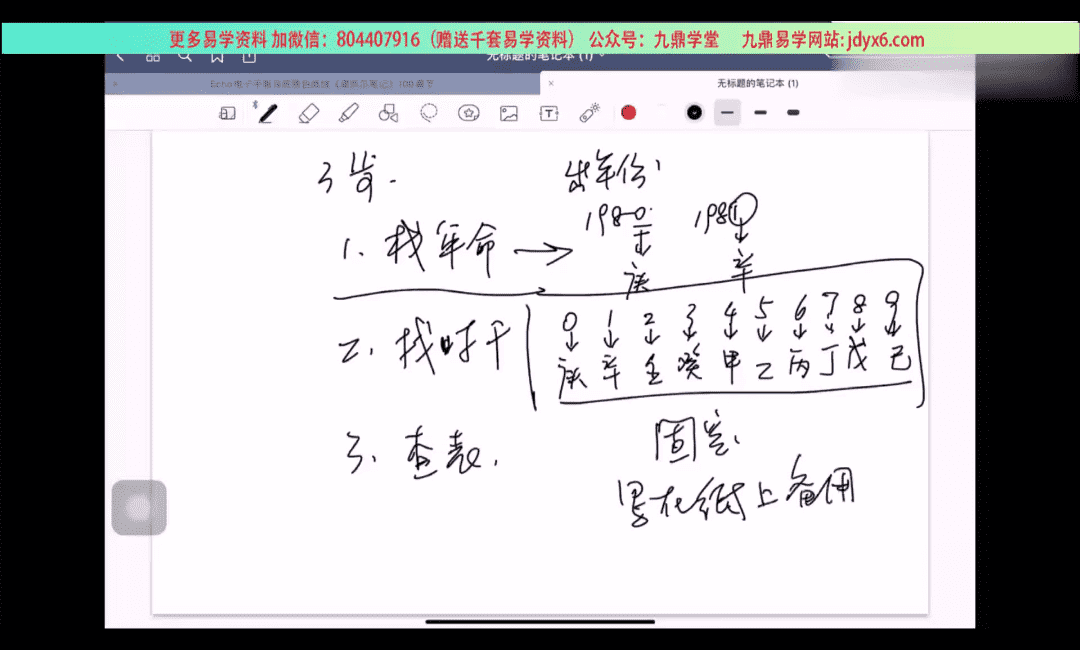 更多易学资料 加微信：804407916（赠送千套易学资料） 公众号：九鼎学堂 九鼎易学网站:jdyx6.com
无标题的笔记本 (1)
无标题的笔记本 (1)
3步. 出年份:
1980 1981
1. 找年命 → ↓ ↓
庚 辛
0 1 2 3 4 5 6 7 8 9
2. 找时干 ↓ ↓ ↓ ↓ ↓ ↓ ↓ ↓ ↓ ↓
庚 辛 壬 癸 甲 乙 丙 丁 戊 己
3. 查表. 固定.
写在纸上备用